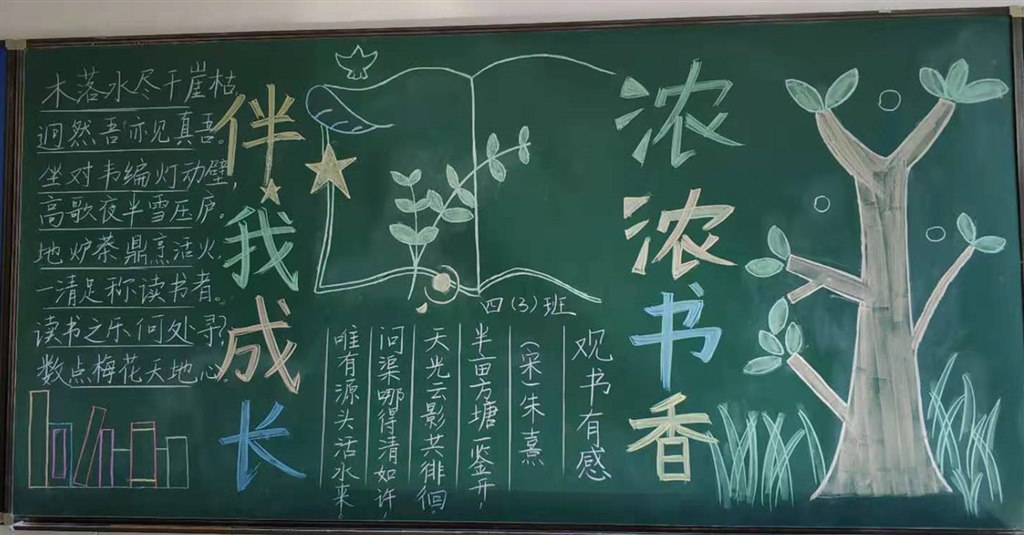 浓浓书香
伴我成长
木落水尽千崖枯
迥然吾亦见真吾。
坐对韦编灯动壁,
高歌夜半雪压庐。
地炉茶鼎烹活火,
一清足称读书者。
读书之乐何处寻?
数点梅花天地心。
四(3)班
观书有感
(宋)朱熹
半亩方塘一鉴开,
天光云影共徘徊
问渠哪得清如许,
唯有源头活水来。